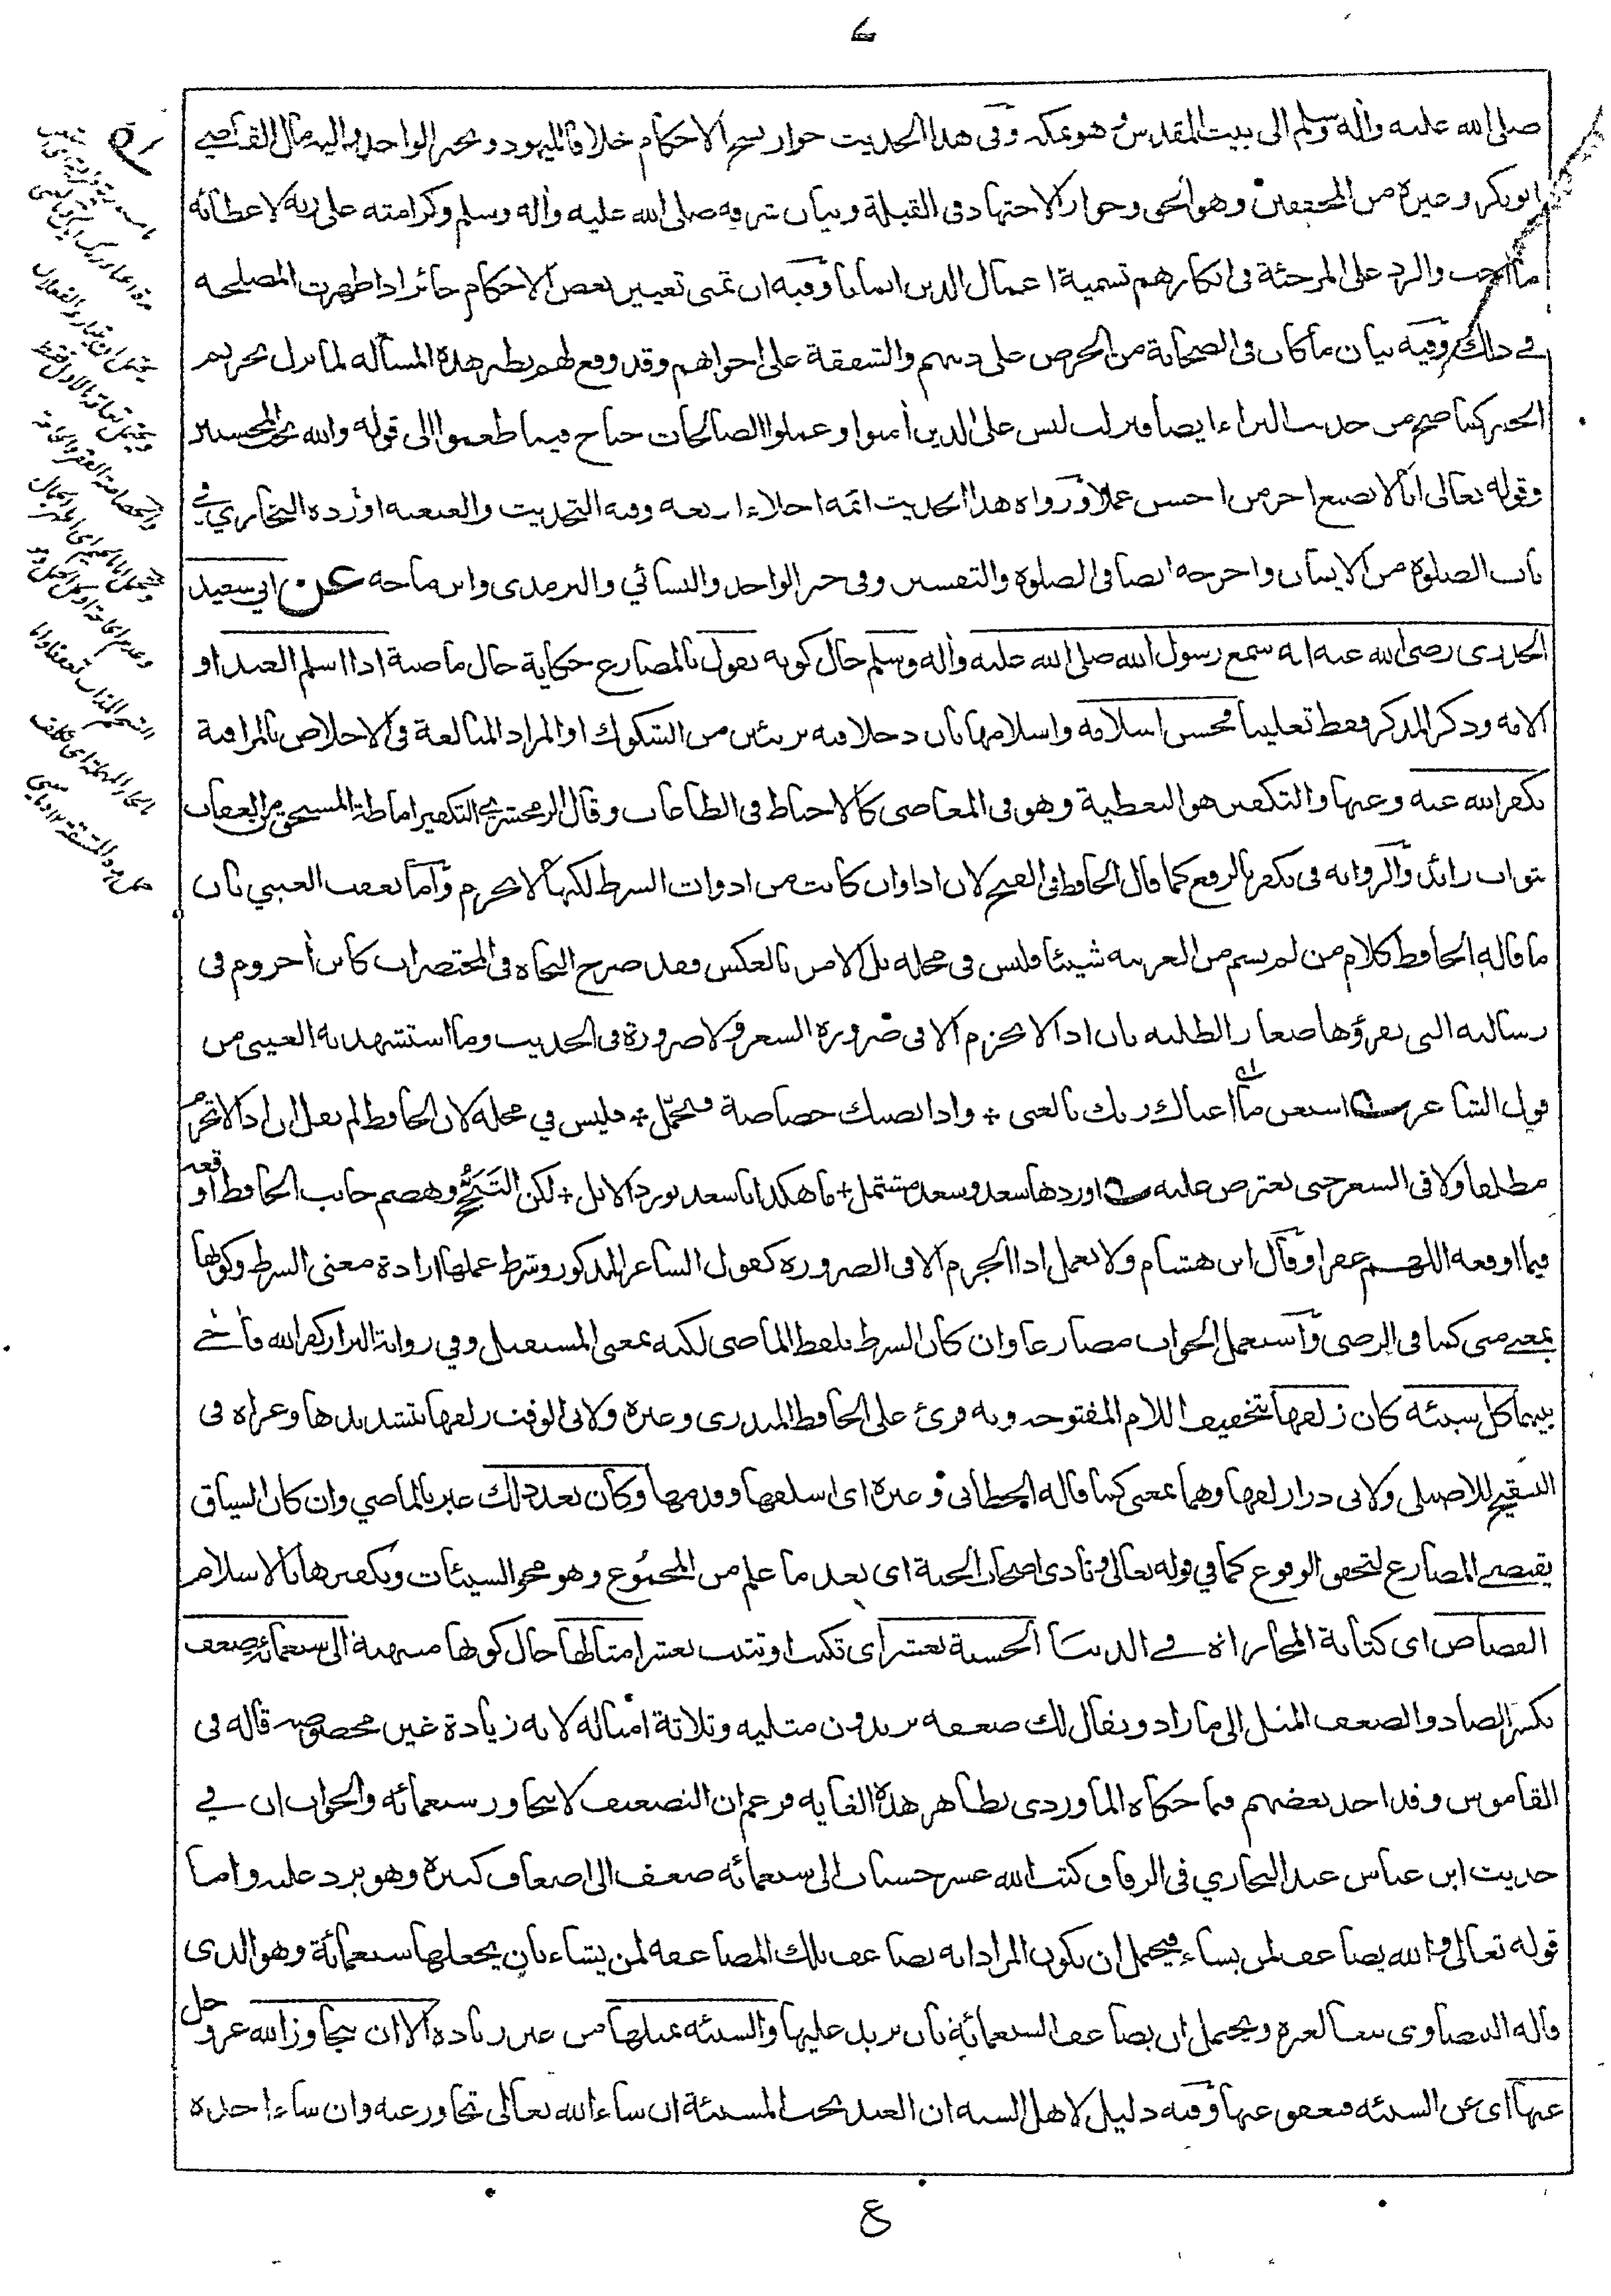 صلى الله عليه وآله وسلم الى بيت المقدس وهو بمكة وفى هذا الحديث جواز نسخ الاحكام خلافا لليهود وبخبر الواحد واليه مال القاضي
ابو بكر وغيره من المحققين وهو الحق وجواز الاجتهاد فى القبلة وبيان شرفه صلى الله عليه وآله وسلم وكرامته على ربه لاعطائه
ما احب والرد على المرجئة فى انكارهم تسمية اعمال الدين ايمانا وفيه ان تمنى تغيير بعض الاحكام جائز اذا ظهرت المصلحه
في ذلك وفيه بيان ما كان فى الصحابة من الحرص على دينهم والشفقة على اخوانهم وقد وقع لهم نظير هذه المسألة لما نزل تحريم
الخمر كما صح من حديث البراء ايضا فنزلت ليس على الذين آمنوا وعملوا الصالحات جناح فيما طعموا الى قوله والله يحب المحسنين
وقوله تعالى انا لا نضيع اجر من احسن عملا ورواة هذا الحديث ائمة اجلاء اربعه وفيه التحديث والعنعنه اورده البخاري في
باب الصلوة من الايمان واخرجه ايضا فى الصلوة والتفسير وفى خبر الواحد والنسائي والترمذى وابن ماجه عن ابي سعيد
الخدرى رضى الله عنه انه سمع رسول الله صلى الله عليه وآله وسلم حال كونه يقول بالمضارع حكاية حال ماضية اذا اسلم العبد او
الامة وذكر المذكر فقط تغليبا فحسن اسلامه واسلامها بان دخلا فيه بريئين من الشكوك او المراد المبالغة فى الاخلاص بالمراقبة
يكفر الله عنه وعنها والتكفير هو التغطية وهو فى المعاصى كالاحباط فى الطاعات وقال الزمخشري التكفير اماطة المستحق من العقاب
بثواب زائد والروايه فى يكفر بالرفع كما قال الحافظ فى الفتح لان اذا وان كانت من ادوات الشرط لكنها لا تجزم واما تعقب العيني بان
ما قاله الحافظ كلام من لم يشم من العربيه شيئا فليس فى محله بل الامر بالعكس فقد صرح النحاة فى المختصرات كابن آجروم فى
رسالته التى يقرؤها صغار الطلبه بان اذا لا تجزم الا فى ضرورة الشعر ولا ضرورة فى الحديث وما استشهد به العينى من
قول الشاعر استغن ما اغناك ربك بالغنى + واذا تصبك خصاصة فتحمّل + فليس في محله لان الحافظ لم يقل ان اذا لا تجزم
مطلقا ولا فى الشعر حتى يعترض عليه اوردها سعد وسعد مشتمل + ما هكذا يا سعد تورد الابل + لكن التبجّح وهضم جانب الحافظ اوقعه
فيما اوقعه اللهم غفرا وقال ابن هشام ولا تعمل اذا الجزم الا فى الضروره كقول الشاعر المذكور وشرط عملها ارادة معنى الشرط وكونها
بمعنى متى كما فى الرضى واستعمل الجواب مضارعا وان كان الشرط بلفظ الماضى لكنه بمعنى المستقبل وفي رواية البزار كفر الله فآخي
بينهما كل سيئه كان زلفها بتخفيف اللام المفتوحه وبه قرئ على الحافظ المنذرى وغيره ولابى الوقت زلفها بتشديدها وعزاه فى
التنقيح للاصيلى ولابى ذر ازلفها وهما بمعنى كما قاله الخطابى وغيره اى اسلفها وقدمها وكان بعد ذلك عبر بالماضي وان كان السياق
يقتضى المضارع لتحقق الوقوع كما في قوله تعالى ونادى اصحاب الجنة اى بعد ما علم من المجموع وهو محو السيئات وتكفيرها بالاسلام
القصاص اى كتابة المجازاة في الدنيا الحسنة بعشر اى تكتب او تثبت بعشر امثالها حال كونها منتهية الى سبعمائة ضعف
بكسر الضاد والضعف المثل الى ما زاد ويقال لك ضعفه يريدون مثليه وثلاثة امثاله لانه زيادة غير محصوصه قاله فى
القاموس وقد اخذ بعضهم فيما حكاه الماوردى بظاهر هذه الغايه فزعم ان التضعيف لا يتجاوز سبعمائه والجواب ان في
حديث ابن عباس عند البخاري فى الرقاق كتب الله عشر حسنات الى سبعمائه ضعف الى اضعاف كثيرة وهو يرد عليه واما
قوله تعالى والله يضاعف لمن يشاء فيحتمل ان يكون المراد انه يضاعف تلك المضاعفه لمن يشاء بان يجعلها سبعمائة وهو الذى
قاله البيضاوى تبعا لغيره ويحتمل ان يضاعف السبعمائة بان يزيد عليها والسيئه بمثلها من غير زيادة الا ان يتجاوز الله عز وجل
عنها اى عن السيئه فيعفو عنها وفيه دليل لاهل السنه ان العبد تحت المشيئة ان شاء الله تعالى تجاوز عنه وان شاء اخذه
ع